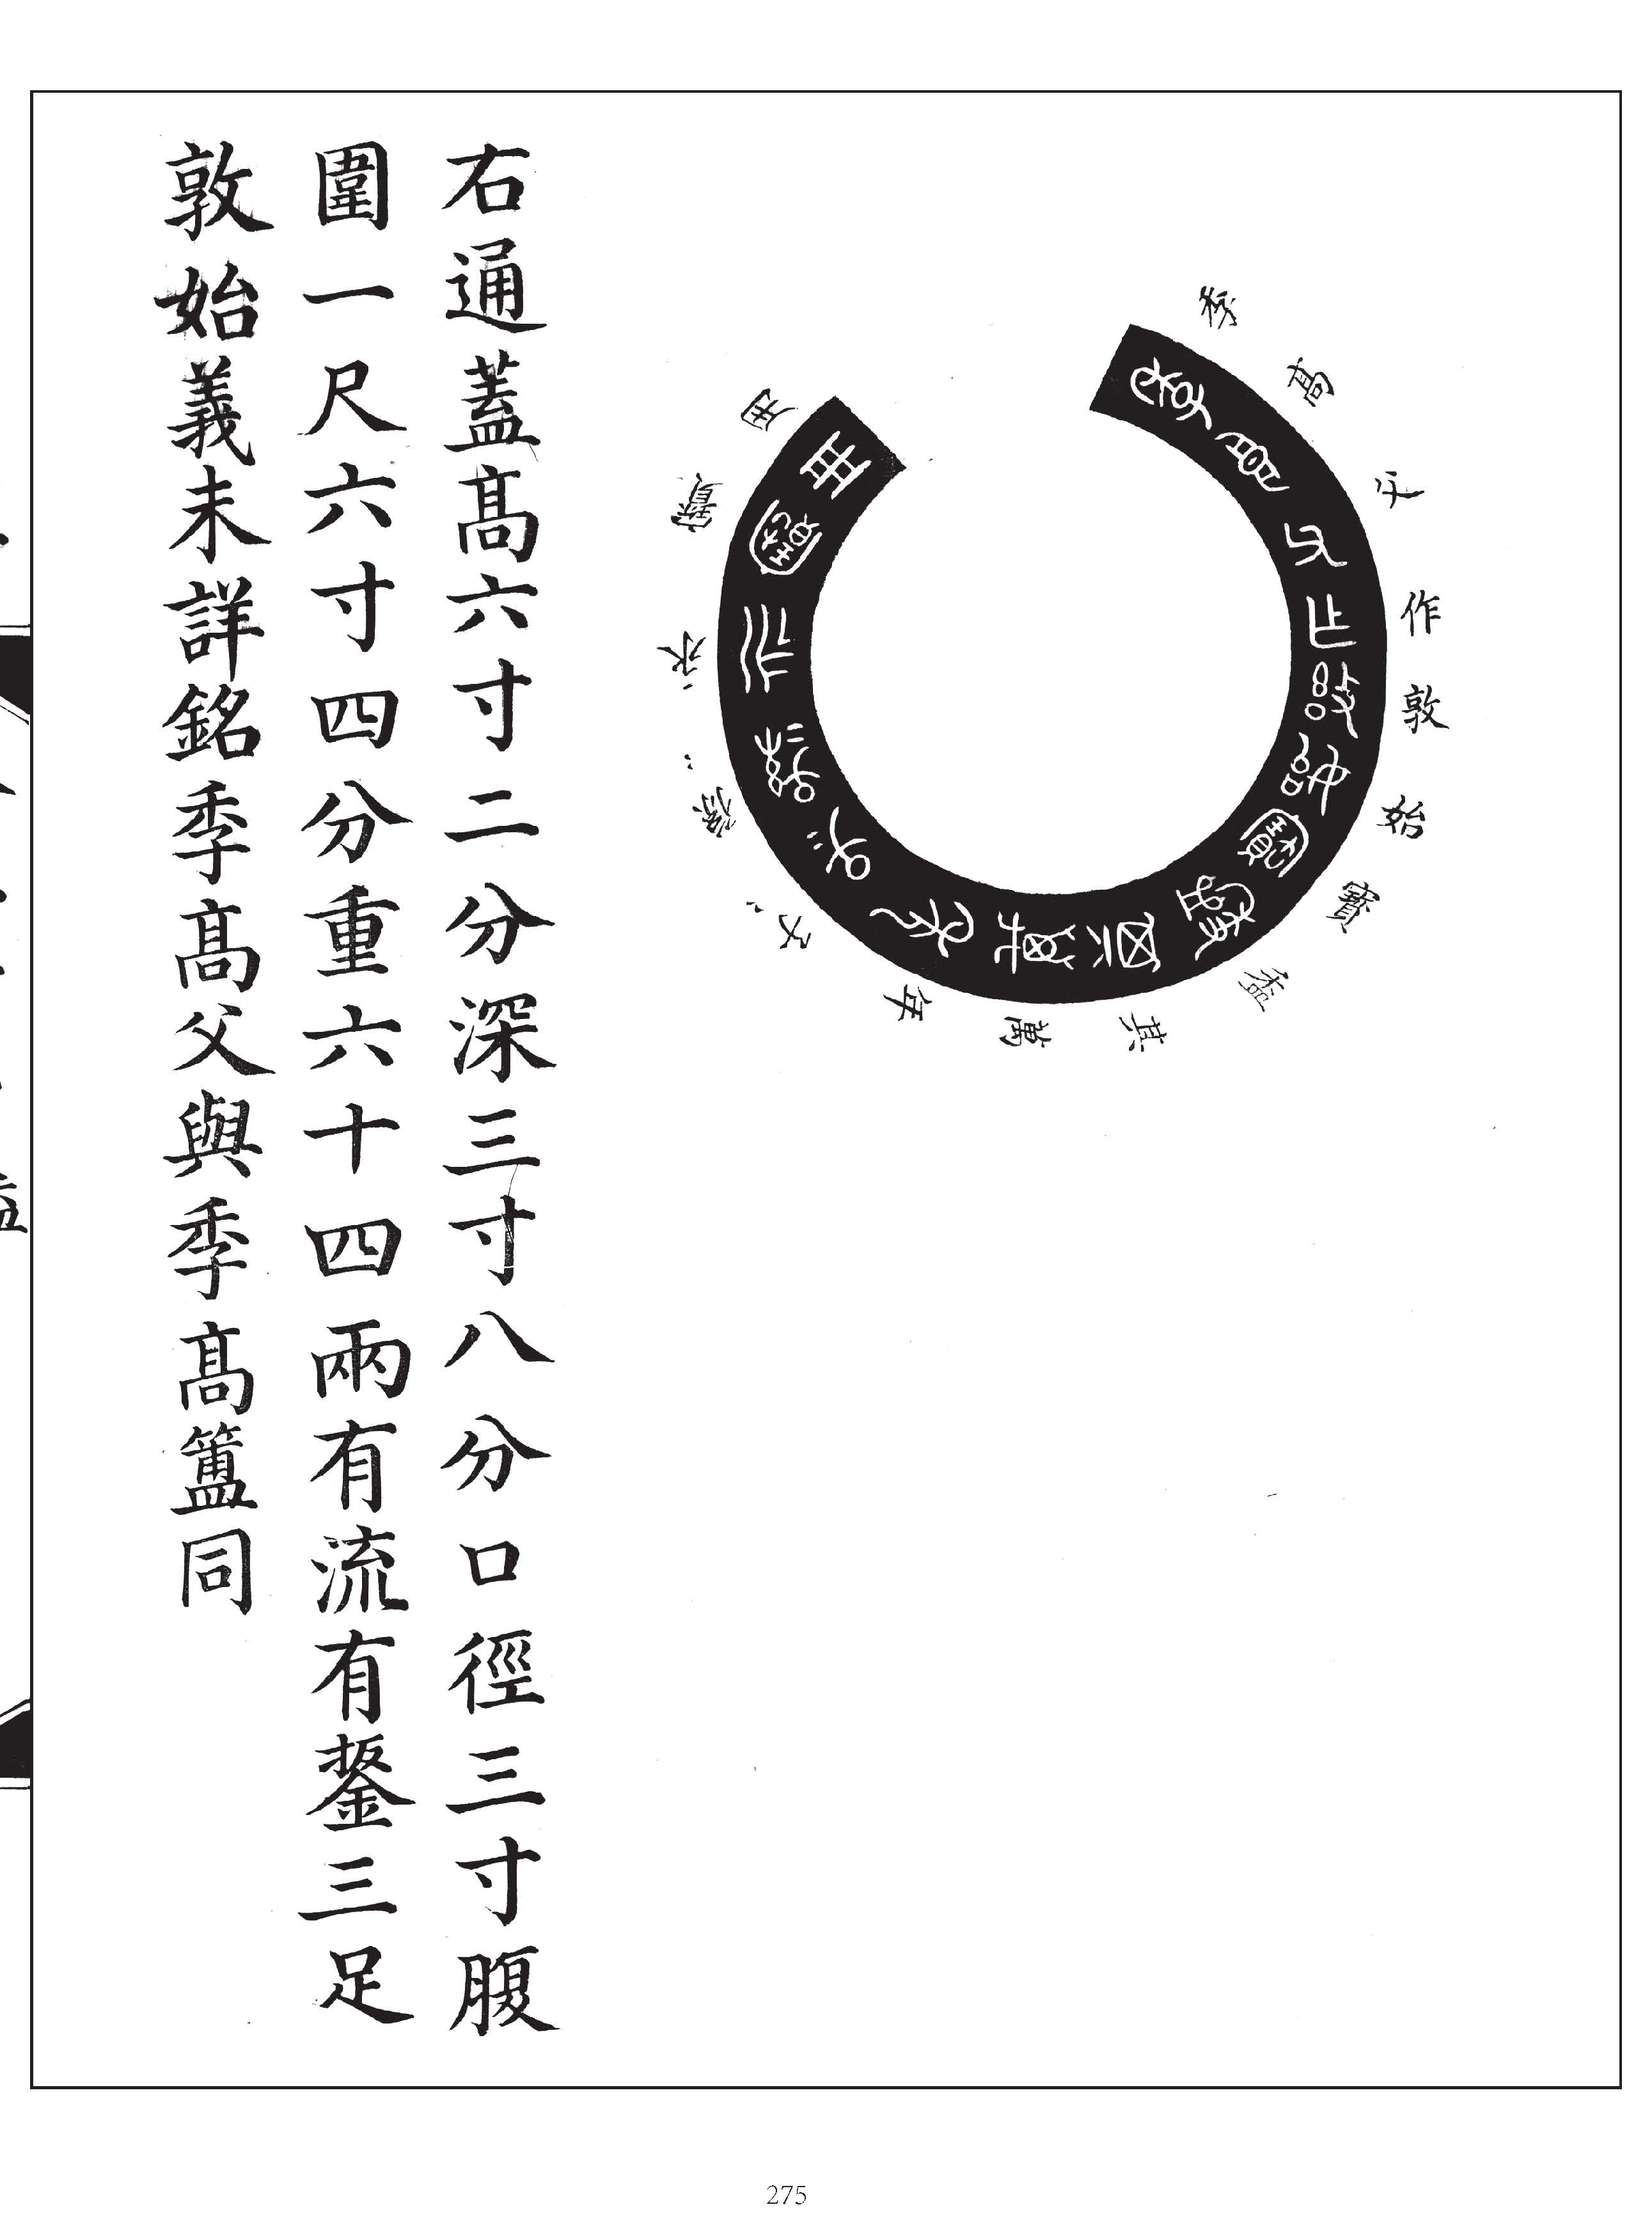 季髙父作敦始寶盉其萬年子〻孫〻永寶用
右通蓋髙六寸二分深三寸八分口徑三寸腹
圍一尺六寸四分重六十四兩有流有鋬三足
敦始義未詳銘季髙父與季髙簠同
275